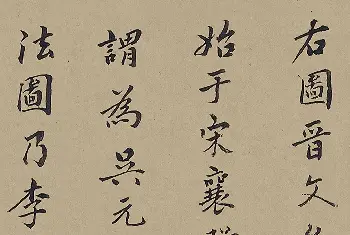 右圖晉文
始于宋襄
謂為吳元
法圖乃李